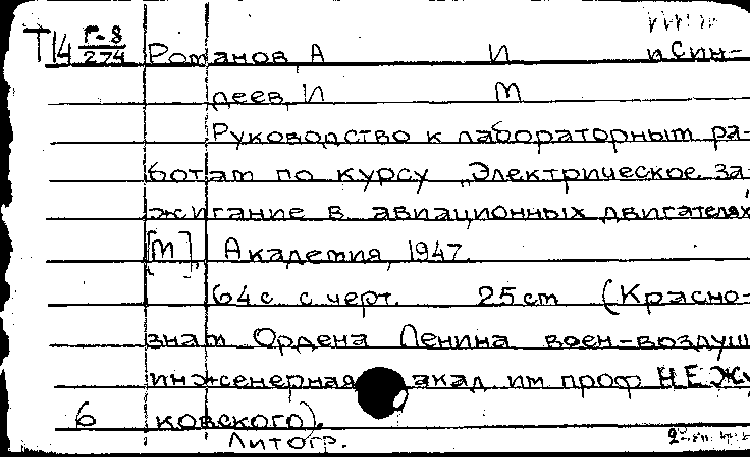 Т14 Г-8/274 Романов, А И и Син-
деев, И М
Руководство к лабораторным ра-
ботам по курсу „Электрическое за-
жигание в авиационных двигателях"
[М], Академия, 1947.
64 с. с черт. 25 см (Красно-
знам Ордена Ленина воен-воздуш
инженерная акад им проф Н Е Жу
6 ковского).
Литогр.